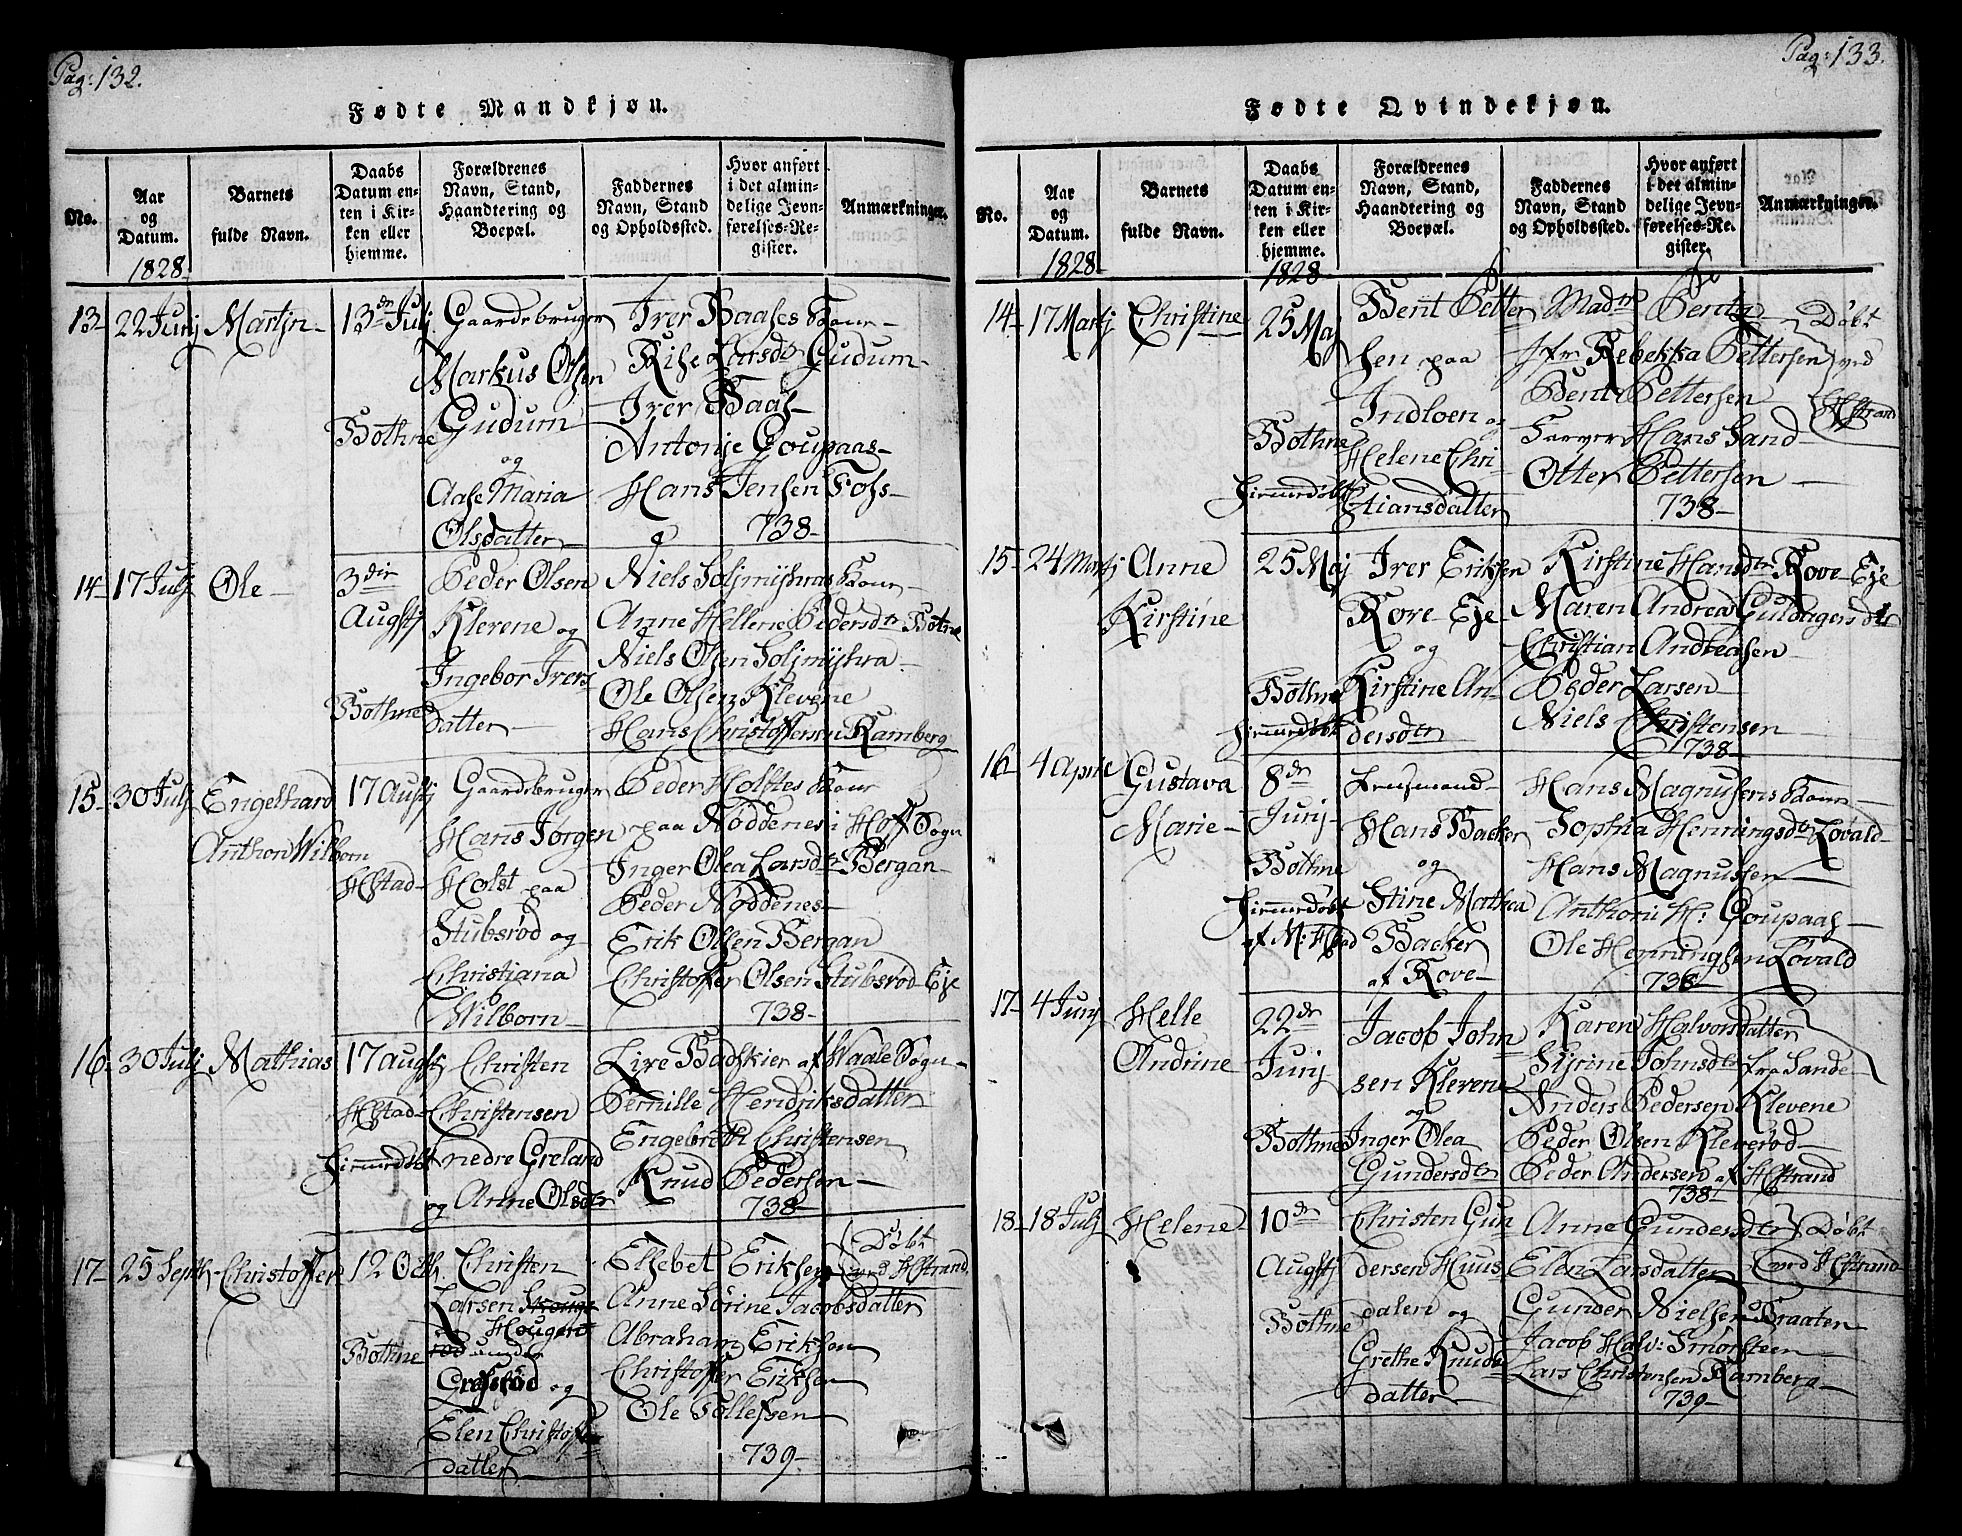 Pag: 132.
Fødte Mandkjøn.
No.
Aar og Datum.
Barnets fulde Navn.
Daabs Datum enten i Kirken eller hjemme.
Forældrenes Navn, Stand, Haandtering og Boepæl.
Faddernes Navn, Stand og Opholdssted.
Hvor anført i det almindelige Jevnførelses-Register.
Anmærkninger.
1828
13- 22 Junj Martjn-
13de Julj
Bothne
Gaardsbruger
Markus Olsen
Gudum
og
Aase Maria
Olsdatter
Iver Baases Kone-
Rise Larsdtr Gudum-
Iver Baas-
Antonje Coupaas-
Hans Jensen Foss-
738-
14- 17 Julj Ole-
3die
Augstj
Bothne
Peder Olsen
Klevene og
Ingebor Ivers
datter-
Niels Soljmyhras Kone-
Anne Hellene Pedersdtr Bothne
Niels Olsen Soljmyhra-
Ole Olsen Klevene
Hans Christoffersen Ramberg
15- 30 Julj Engelhard
Anthon Wilborn
17 Augstj
HStad-
Gaardsbruger
Hans Jørgen
Holst paa
Stubsrød og
Christiana
Wilborn-
Peder Holstes Kone
paa Nøddenes i Hoff Sogn
Inger Olea Larsdtr Bergan-
Peder Nøddenes-
Erik Olsen Bergan
Christoffer Olsen Stubsrød Eje
738-
16- 30 Julj Mathias
17 augstj
HStad-
Hjemmedøbt
Christen
Christensen
nedre Greland
og Anne Olsdtr
Live Badskier af Waale Sogn-
Pernille Hendriksdatter
Engebreth Christensen
Knud Pedersen-
738-
17- 25 Septb. Christoffer
12 Octb.
Bothne
Christen
Larsen
Hougen
under
og
Elen Christoffer
datter-
Elsebet Eriksen
Anne Sørine Jacobsdatter
Abraham Eriksen
Christoffer Eriksen
Ole Tollefsen
739-
Døbt
ved HStrand
Pag: 133.
Fødte Qvindekjøn.
No.
Aar og Datum.
Barnets fulde Navn.
Daabs Datum enten i Kirken eller hjemme.
Forældrenes Navn, Stand, Haandtering og Boepæl.
Faddernes Navn, Stand og Opholdssted.
Hvor anført i det almindelige Jevnførelses-Register.
Anmærkninger.
1828
1828
14- 17 Martj Christine
25 Maj
Bothne
Hjemmedøbt
Bent Petter
sen paa
Indloen og
Helene Chri-
stiansdatter
Madm Bentz-
Jfr Rebekka Pettersen
Bent Pettersen
Farver Hans Sand-
Otter Pettersen-
738-
Døbt
ved
HStrand
15- 24 Martj Anne
Kirstine
25 Maj
Bothne
Hjemmedøbt
Iver Eriksen
Rove Eje
og
Kirstine An-
dersdtr
Kirstine Hansdtr Rove Eje
Maren Andrea Guldagersdtr
Christian Andreasen
Peder Larsen
Niels Christensen
738-
16- 4 Aprile Gustava
Marie-
8de
Junj
Bothne
Hjemmedøbt
Hans Backer
og
Stine Mathea
Backer
af Rove-
Hans Magnusens Kone-
Sophia Henningsdtr Løvald-
Hans Magnussen-
Anthoni H: Coupaas-
Ole Henningsen Løvald
738-
17- 4 Junj Helle
Andrine
22de
Junj
Bothne
Jacob John
sen Klevene
og
Inger Olea
Gundersdtr
Karen Halvorsdatter
Syrine Johnsdtr fra Sande-
Anders Pedersen Klevene
Peder Olsen Kleverød-
Peder Andersen af HStrand
738-
18- 18 Julj Helene
10de
Augstj
Bothne
Christen Gun
dersen Huus
dalen og
Grethe Knuds
datter-
Anne Gundersdtr
Elen Larsdatter
Gunder Nielsen Braaten
Jacob Halv: Smørsteen
Lars Christensen Ramberg-
739-
Døbt
ved HStrand